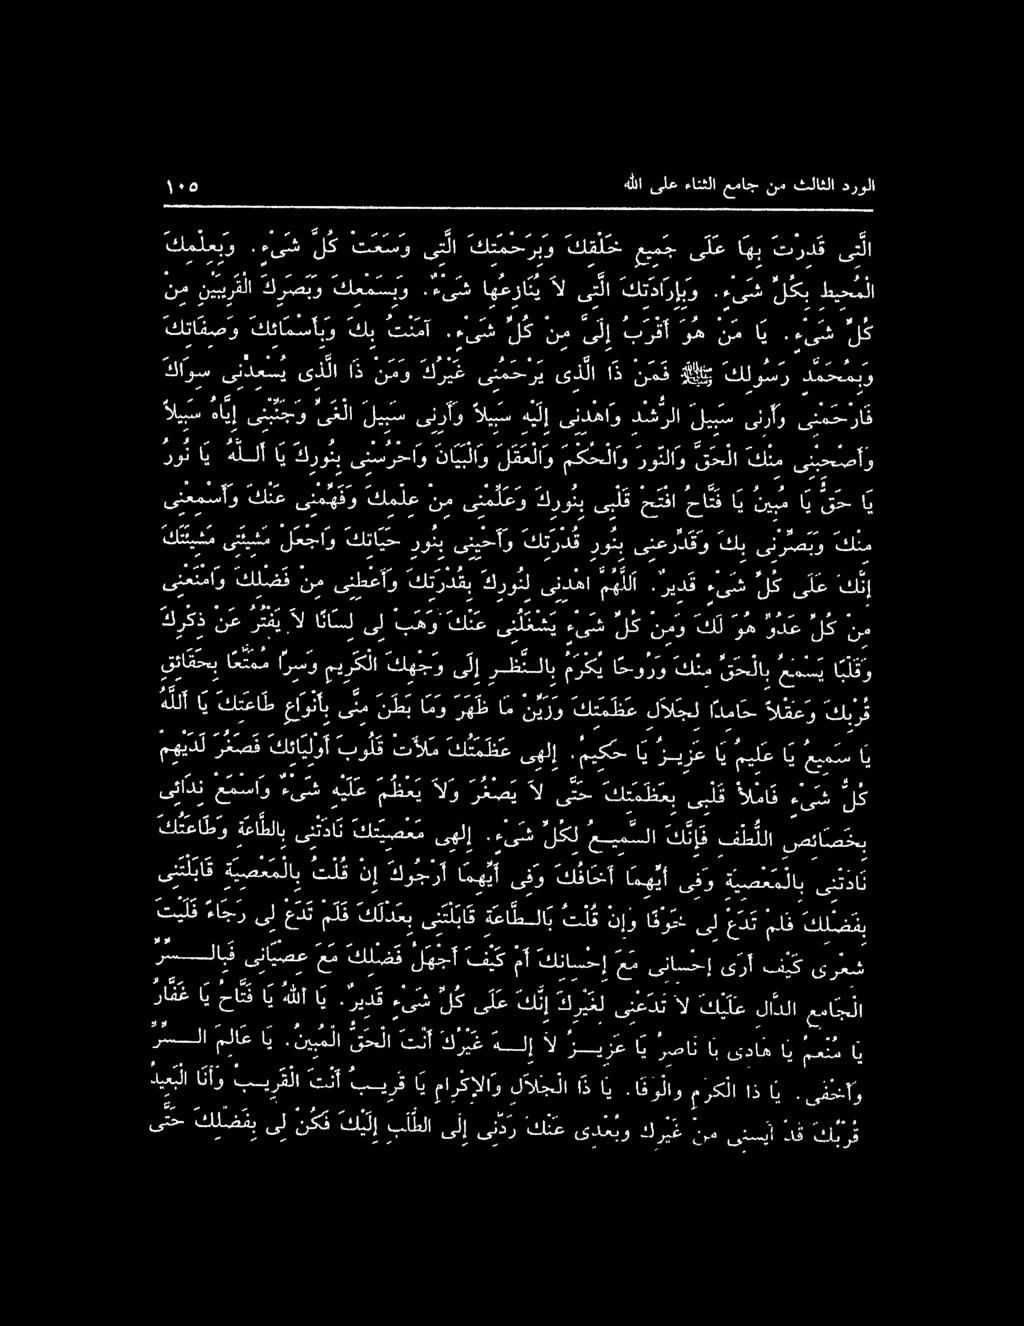 الورد الثالث من جامع الثناء على الله ١٠٥
الَّتِى قَدِرْتَ بِهَا عَلَى جَمِيعِ خَلْقِكَ وَبِرَحْمَتِكَ الَّتِى وَسَعَتْ كُلَّ شَىْءٍ. وَبِعِلْمِكَ
الْمُحِيطِ بِكُلِّ شَىْءٍ. وَبِإِرَادَتِكَ الَّتِى لاَ يُنَازِعُهَا شَىْءٌ. وَبِسَمْعِكَ وَبَصَرِكَ الْقَرِيبَيْنِ مِنْ
كُلِّ شَىْءٍ. يَا مَنْ هُوَ أَقْرَبُ إِلَىَّ مِنْ كُلِّ شَىْءٍ. آمَنْتُ بِكَ وَبِأَسْمَائِكَ وَصِفَاتِكَ
وَبِمُحَمَّدٍ رَسُولِكَ ﷺ فَمَنْ ذَا الَّذِى يَرْحَمُنِى غَيْرُكَ وَمَنْ ذَا الَّذِى يُسْعِدُنِى سِوَاكَ
فَارْحَمْنِى وَأَرِنِى سَبِيلَ الرُّشْدِ وَاهْدِنِى إِلَيْهِ سَبِيلاً وَأَرِنِى سَبِيلَ الْغَىِّ وَجَنِّبْنِى إِيَّاهُ سَبِيلاً
وَأَصْحِبْنِى مِنْكَ الْحَقَّ وَالنُّورَ وَالْحُكْمَ وَالْعَقْلَ وَالْبَيَانَ وَاحْرُسْنِى بِنُورِكَ يَا أَللَّهُ يَا نُورُ
يَا حَقُّ يَا مُبِينُ يَا فَتَّاحُ افْتَحْ قَلْبِى بِنُورِكَ وَعَلِّمْنِى مِنْ عِلْمِكَ وَفَهِّمْنِى عَنْكَ وَأَسْمِعْنِى
مِنْكَ وَبَصِّرْنِى بِكَ وَقَدِّرعنِى بِنُورِ قُدْرَتِكَ وَأَحْيِنِى بِنُورِ حَيَاتِكَ وَاجْعَلْ مَشِيئَتِى مَشِيئَتَكَ
إِنَّكَ عَلَى كُلِّ شَىْءٍ قَدِيرٌ. اَللَّهُمَّ اهْدِنِى لِنُورِكَ بِقُدْرَتِكَ وَأَعْطِنِى مِنْ فَضْلِكَ وَامْنَعْنِى
مِنْ كُلِّ عَدُوٍّ هُوَ لَكَ وَمِنْ كُلِّ شَىْءٍ يَشْغَلُنِى عَنْكَ وَهَبْ لِى لِسَانًا لاَ يَفْتُرُ عَنْ ذِكْرِكَ
وَقَلْبًا يَسْمَعُ بِالْحَقِّ مِنْكَ وَرُوحًا يُكْرَمُ بِالنَّظَرِ إِلَى وَجْهِكَ الْكَرِيمِ وَسِرًّا مُمَتَّعًا بِحَقَائِقِ
قُرْبِكَ وَعَقْلاً حَامِدًا لِجَلاَلِ عَظَمَتِكَ وَزَيِّنْ مَا ظَهَرَ وَمَا بَطَنَ مِنِّى بِأَنْوَاعِ طَاعَتِكَ يَا أَللَّهُ
يَا سَمِيعُ يَا عَلِيمُ يَا عَزِيزُ يَا حَكِيمُ. إِلهِى عَظَمَتُكَ مَلأَتْ قُلُوبَ أَوْلِيَائِكَ فَصَغُرَ لَدَيْهِمْ
كُلُّ شَىْءٍ فَامْلأْ قَلْبِى بِعَظَمَتِكَ حَتَّى لاَ يَصْغُرَ وَلاَ يَعْظُمَ عَلَيْهِ شَىْءٌ وَاسْمَعْ نِدَائِى
بِخَصَائِصِ اللُّطْفِ فَإِنَّكَ السَّمِيعُ لِكُلِّ شَىْءٍ. إِلهِى مَعْصِيَتُكَ نَادَتْنِى بِالطَّاعَةِ وَطَاعَتُكَ
نَادَتْنِى بِالْمَعْصِيَةِ وَفِى أَيِّهِمَا أَخَافُكَ وَفِى أَيِّهِمَا أَرْجُوكَ إِنْ قُلْتُ بِالْمَعْصِيَةِ قَابَلْتَنِى
بِفَضْلِكَ فَلَمْ تَدَعْ لِى خَوْفًا وَإِنْ قُلْتُ بَالطَّاعَةِ قَابَلْتَنِى بِعَدْلِكَ فَلَمْ تَدَعْ لِى رَجَاءً فَلَيْتَ
شِعْرِى كَيْفَ أَرَى إِحْسَانِى مَعَ إِحْسَانِكَ أَمْ كَيْفَ أَجْهَلُ فَضْلَكَ مَعَ عِصْيَانِى فَبِالسِّرِّ
الْجَامِعِ الدَّالِ عَلَيْكَ لاَ تَدَعْنِى لِغَيْرِكَ إِنَّكَ عَلَى كُلِّ شَىْءٍ قَدِيرٌ. يَا أَللهُ يَا فَتَّاحُ يَا غَفَّارُ
يَا مُنْعِمُ يَا هَادِى يَا نَاصِرُ يَا عَزِيزُ لاَ إِلهَ غَيْرُكَ أَنْتَ الْحَقُّ الْمُبِينُ. يَا عَالِمَ السِّرِّ
وَأَخْفَى. يَا ذَا الْكَرَمِ وَالْوَفَا. يَا ذَا الْجَلاَلِ وَالإِكْرَامِ يَا قَرِيبُ أَنْتَ الْقَرِيبُ وَأَنَا الْبَعِيدُ
قُرْبُكَ قَدْ آيَسَنِى مِنْ غَيْرِكَ وَبُعْدِى عَنْكَ رَدَّنِى إِلَى الطَّلَبِ إِلَيْكَ فَكُنْ لِى بِفَضْلِكَ حَتَّى